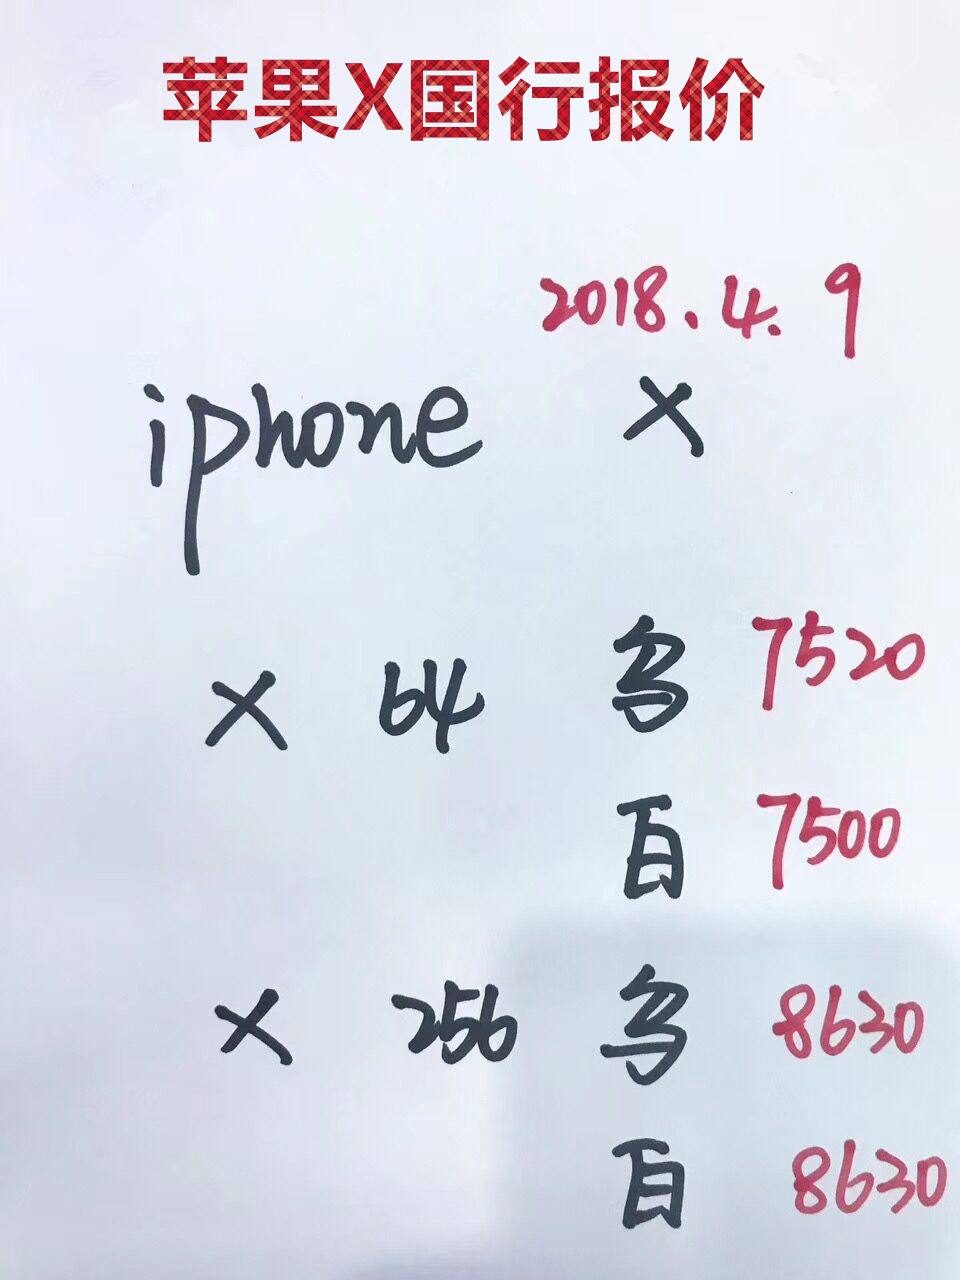 苹果X国行报价
2018.4.9
iphone X
X 64 乌 7520
百 7500
X 256 乌 8630
百 8630